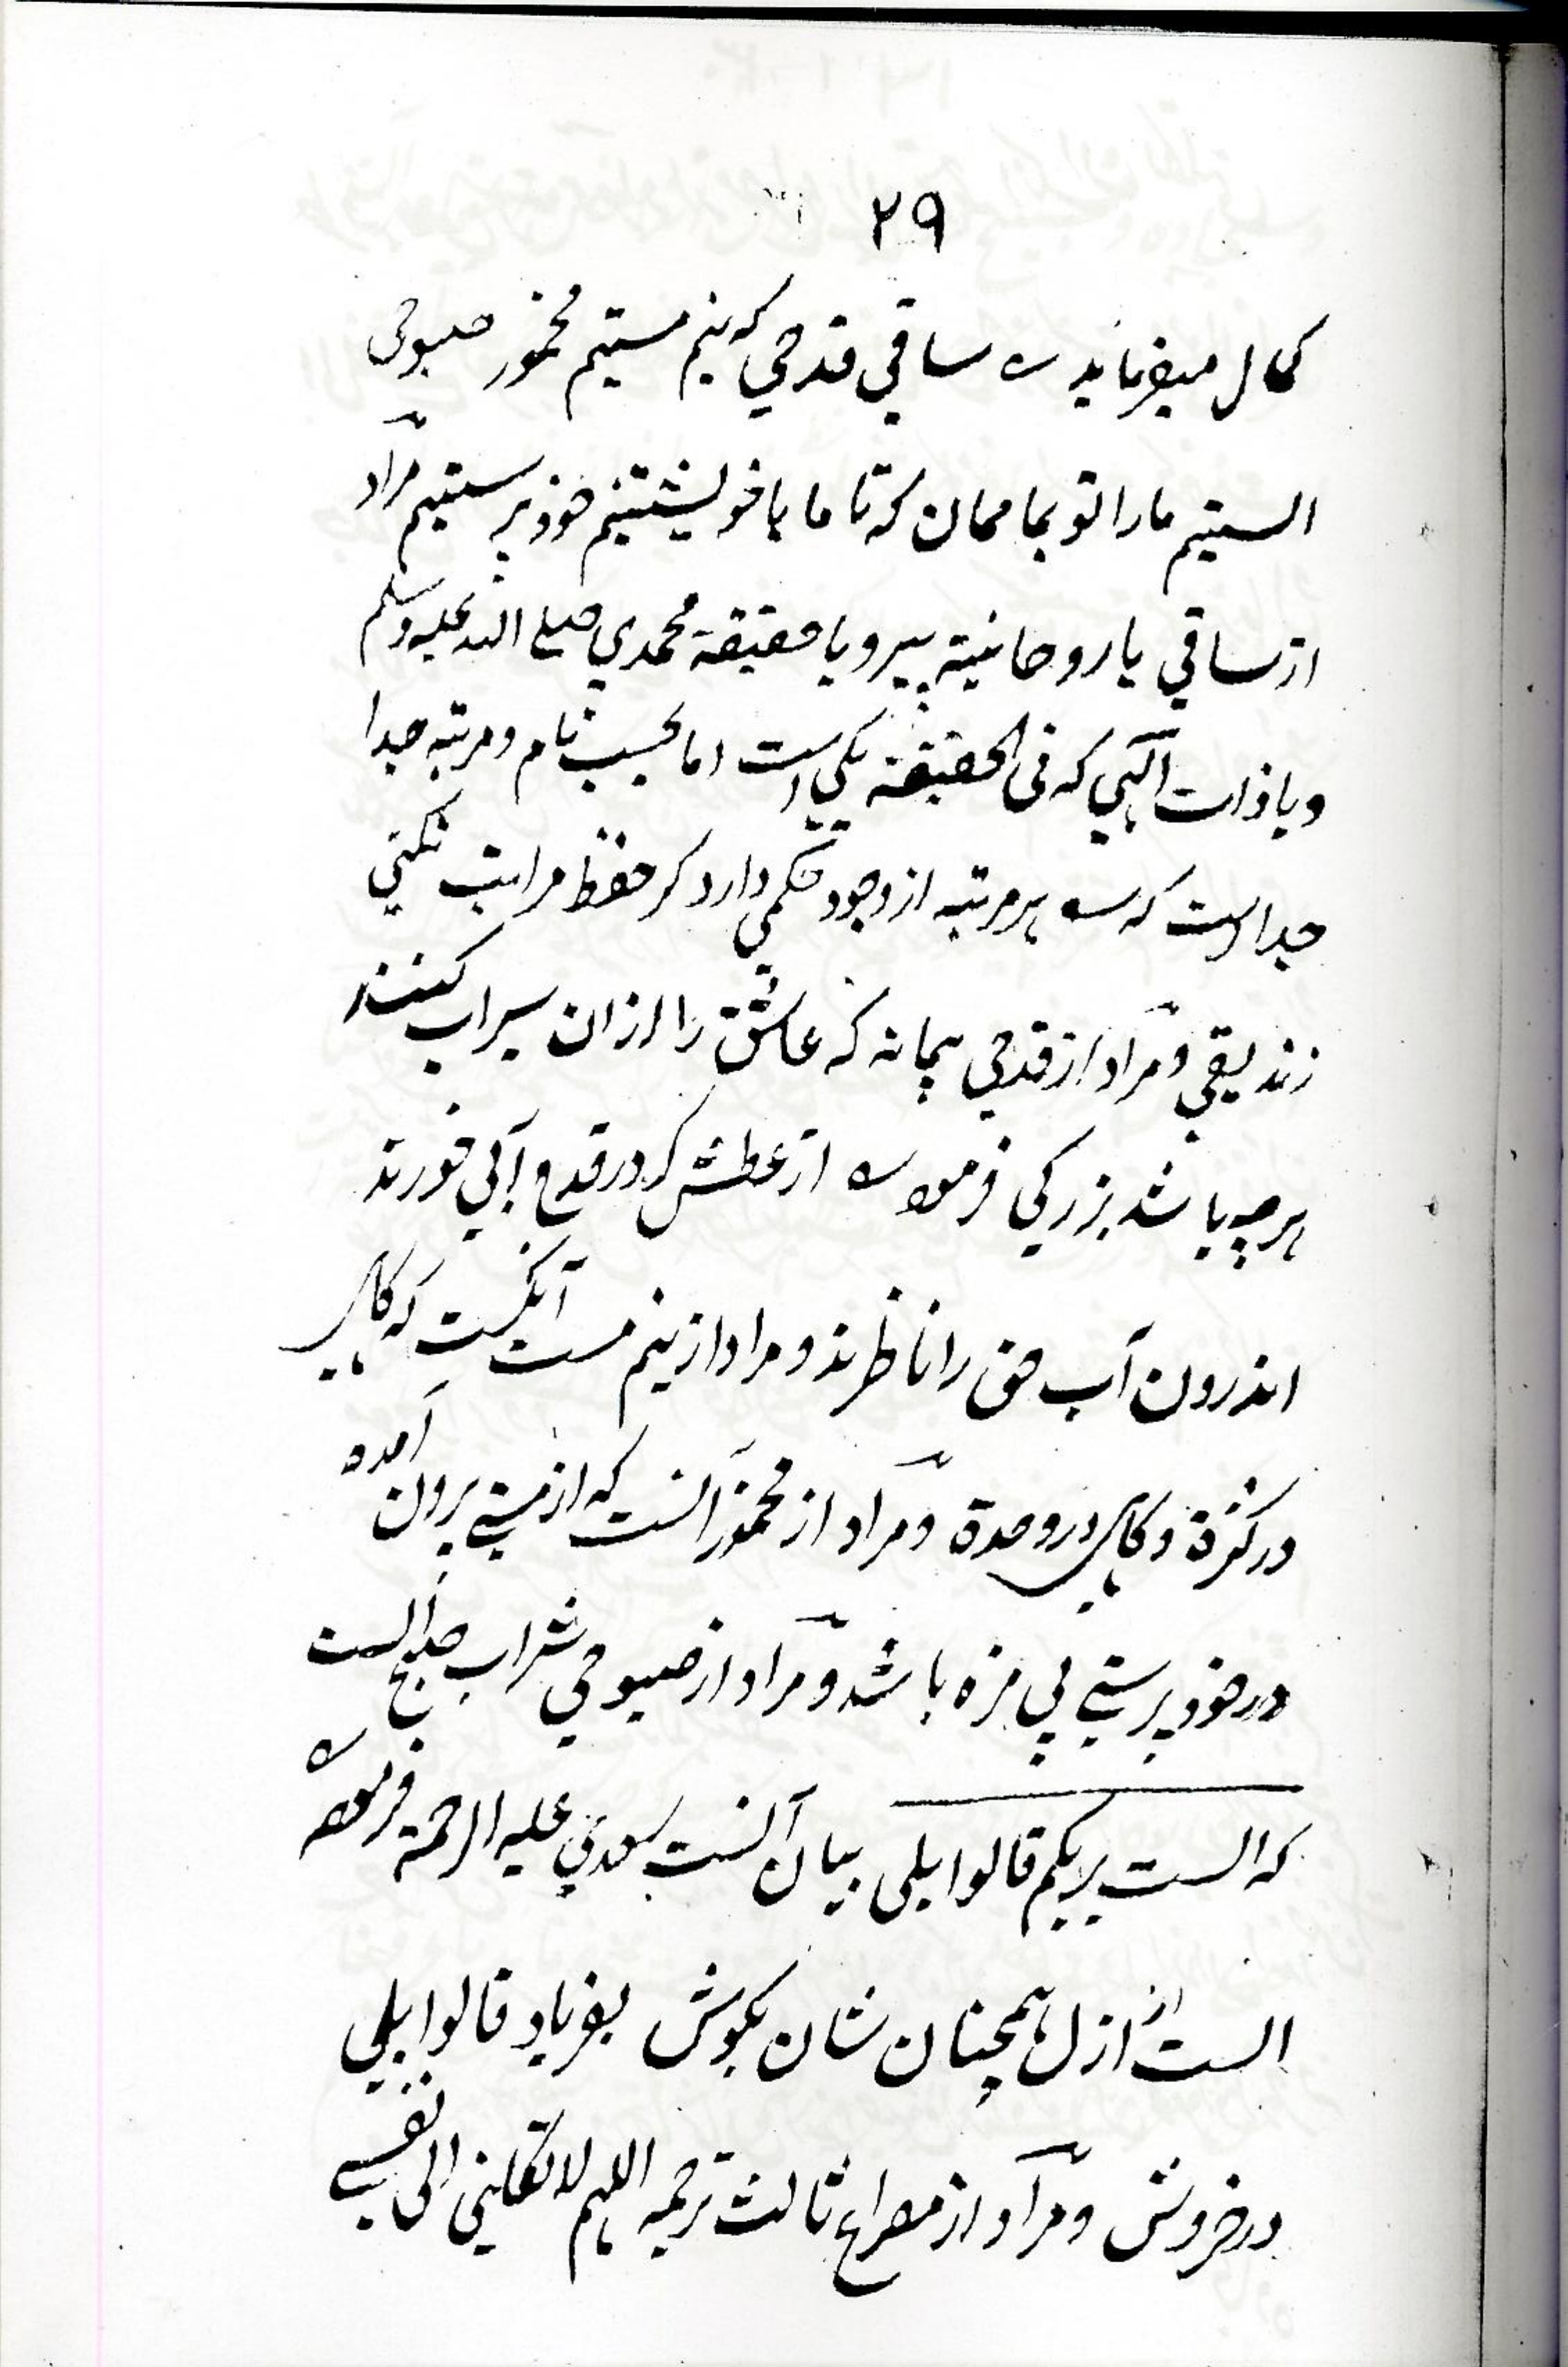 ۲۹
کمال میفرماید ساقی قدحی که نیم مستیم مخمور صبوحی
الستیم مارا تو بما ممان که تا ما با خویشتنیم خود پرستیم مراد
از ساقی یا روحانیة پیر و یا حقیقة محمدی صلی الله علیه وسلم
و یا ذات الهی که فی الحقیقة یکی است اما بحسب نام و مرتبه جدا
جداست که هر مرتبه از وجود حکمی دارد گر حفظ مراتب نکنی
زندیقی و مراد از قدحی پیمانه که عاشق را ازان سیراب کنند
هرچه باشد بزرگی فرموده از عطش گر در قدح آبی خورند
اندرون آب حق را ناظرند و مراد از نیم مست آنکست که گاهی
در کثرة و گاهی در وحدة و مراد از مخمور آنست که از مستی برون آمده
در خود پرستی بی مزه باشد و مراد از صبوحی شراب صبح الست
که الست بربکم قالوا بلی بیان آنست سعدی علیه الرحمة فرموده
الست از ازل همچنان شان بگوش بفریاد قالوا بلی
در خروش و مراد از مصراع ثالث ترجمه اللهم لا تکلنی الی نفسی